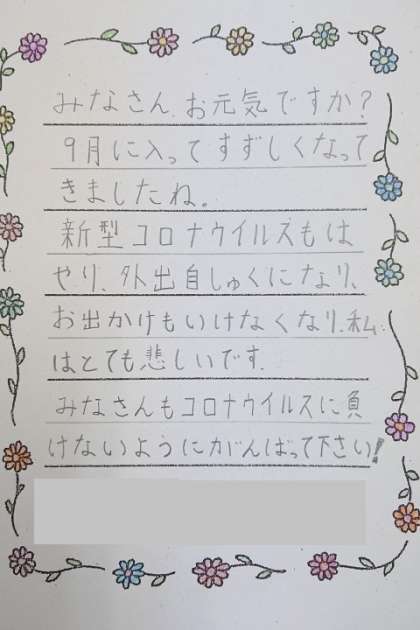 みなさん、お元気ですか?
9月に入ってすずしくなって
きましたね。
新型コロナウイルスもは
やり、外出自しゅくになり、
お出かけもいけなくなり、私
はとても悲しいです。
みなさんもコロナウイルスに負
けないようにがんばって下さい!